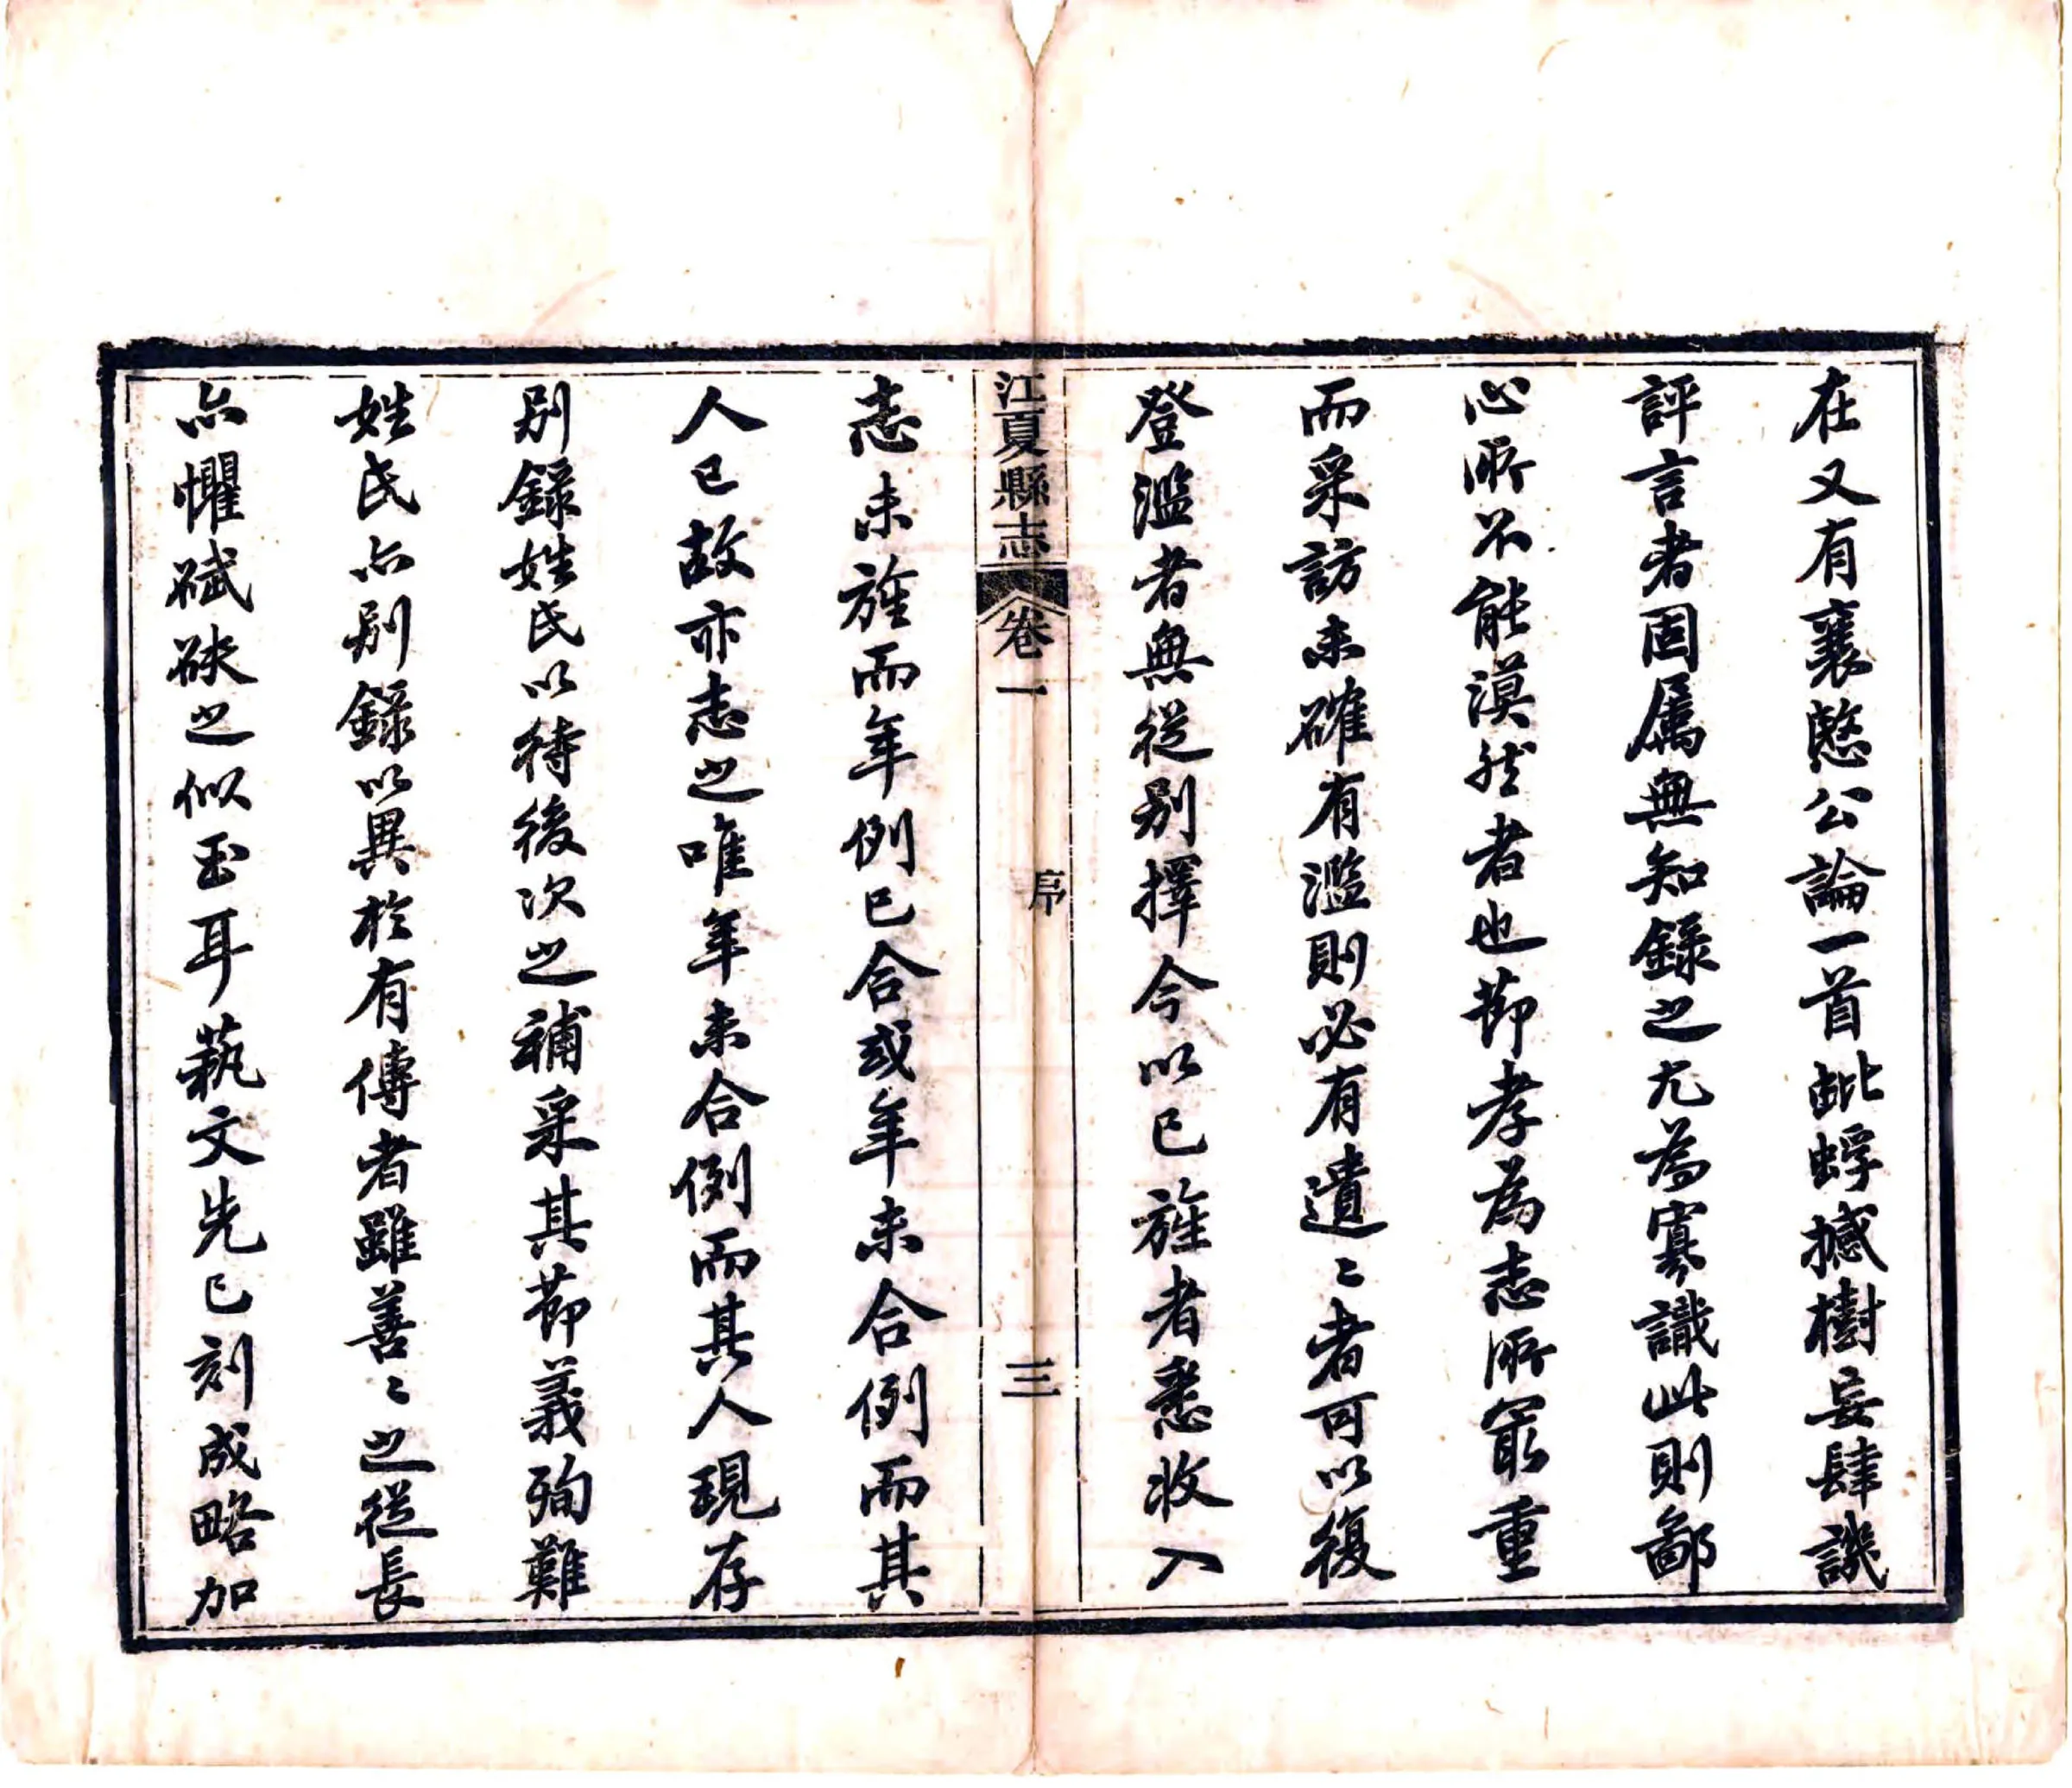 在又有襄愍公論一首蚍蜉撼樹妄肆譏
評言者固属無知錄之尤為寡識此則鄙
心所不能漠然者也節孝為志所冣重
而采訪未確有濫則必有遺〻者可以復
登濫者無從别擇今以已旌者悉收入
江夏縣志
卷一
序
三
志未旌而年例已合或年未合例而其
人已故亦志之唯年未合例而其人現存
别錄姓氏以待後次之補采其節義殉難
姓氏亦别錄以異於有傳者雖善〻之從長
亦懼碔砆之似玉耳蓺文先已刻成略加